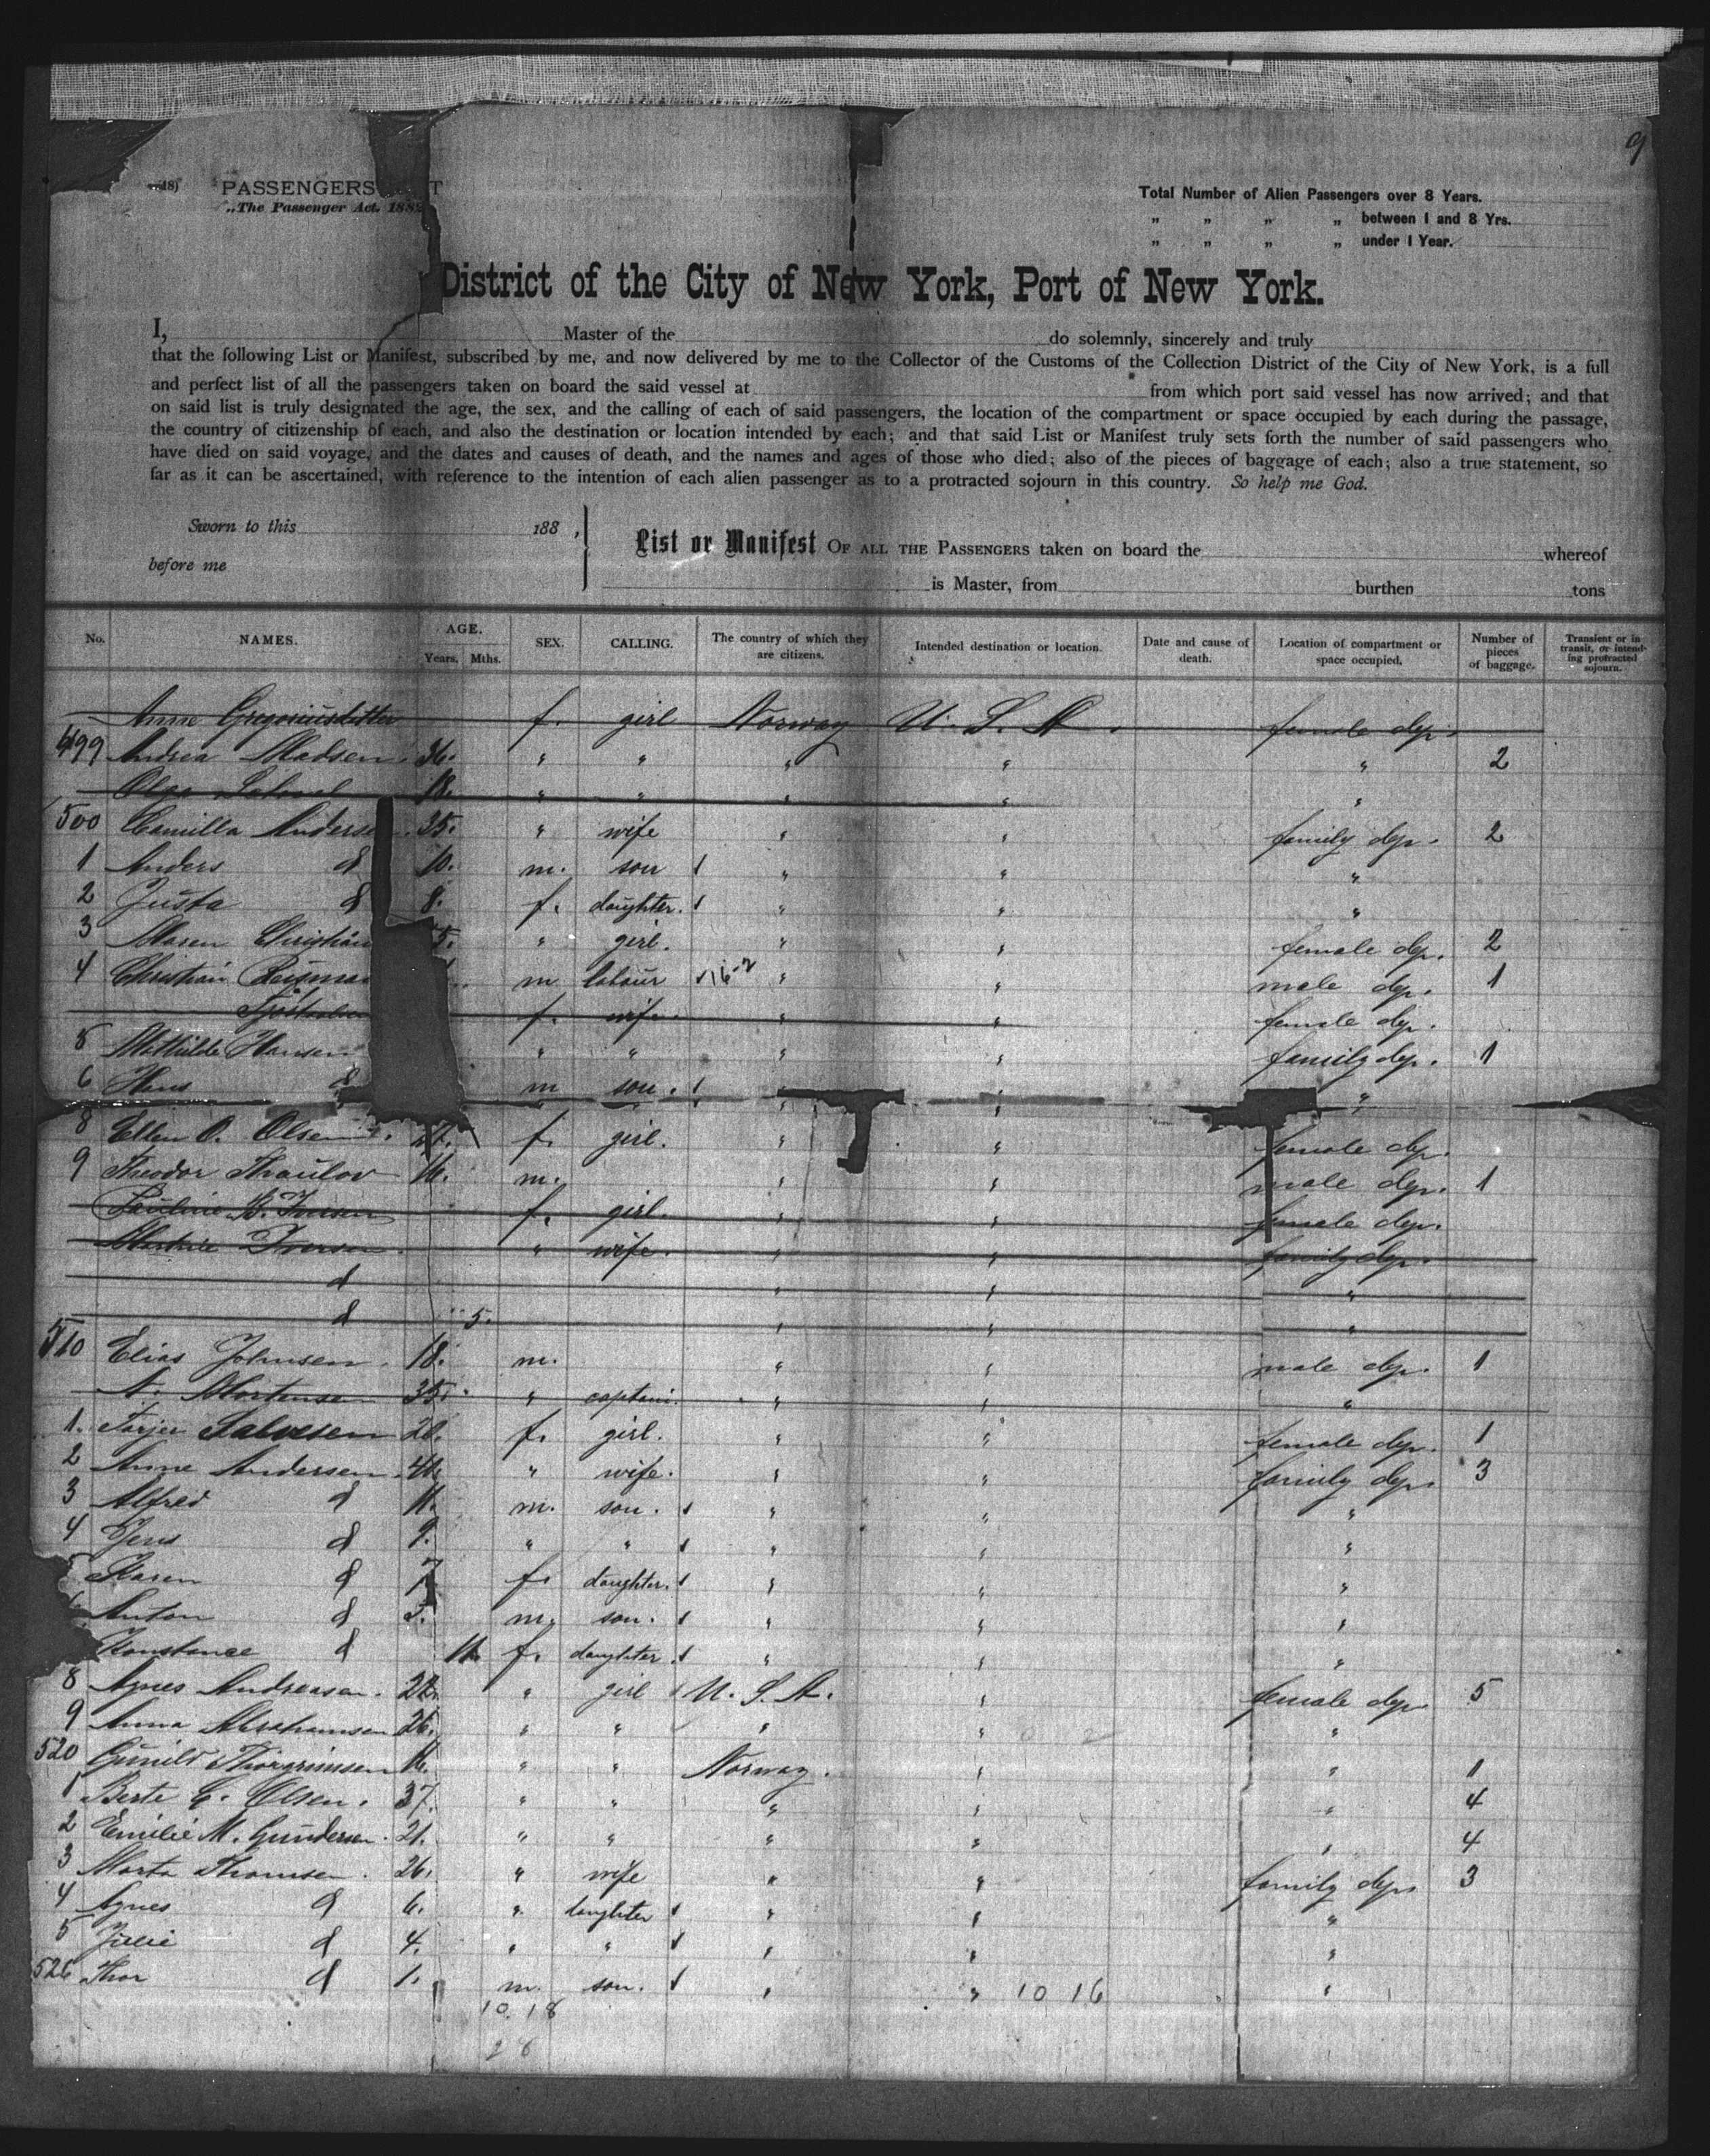 9
PASSENGERS
„The Passenger Act. 1882
Total Number of Alien Passengers over 8 Years.
„ „ „ „ between 1 and 8 Yrs.
„ „ „ „ under 1 Year.
District of the City of New York, Port of New York.
I, Master of the do solemnly, sincerely and truly
that the following List or Manifest, subscribed by me, and now delivered by me to the Collector of the Customs of the Collection District of the City of New York, is a full
and perfect list of all the passengers taken on board the said vessel at from which port said vessel has now arrived; and that
on said list is truly designated the age, the sex, and the calling of each of said passengers, the location of the compartment or space occupied by each during the passage,
the country of citizenship of each, and also the destination or location intended by each; and that said List or Manifest truly sets forth the number of said passengers who
have died on said voyage, and the dates and causes of death, and the names and ages of those who died; also of the pieces of baggage of each; also a true statement, so
far as it can be ascertained, with reference to the intention of each alien passenger as to a protracted sojourn in this country. So help me God.
Sworn to this 188 ,
before me
List or Manifest OF ALL THE PASSENGERS taken on board the whereof
is Master, from burthen tons
No. NAMES. AGE. Years. Mths. SEX. CALLING. The country of which they are citizens. Intended destination or location. Date and cause of death. Location of compartment or space occupied. Number of pieces of baggage. Transient or in transit, or intending protracted sojourn.
Anne Gregoriusdatter f. girl Norway U. S. A. female dep.
499 Andrea Madsen 36. " " " " " 2
Olga 18. " " " " "
500 Camilla Anderse 35. " wife " " family dep. 2
1 Anders d 10. m. son " " "
2 Justa d 8. f. daughter. " " "
3 Maren Christian 5. " girl. " " female dep. 2
4 Christian Rasmus m labour 16-2 " " male dep. 1
f. wife. " " female dep.
5 Mathilde Hansen " " " " family dep. 1
6 Hans d m son. " " "
8 Ellen O. Olsen 27. f. girl. " " female dep.
9 Theodor Thaulov 16. m. " " male dep. 1
Pauline B. Iversen f. girl. " " female dep.
Iversen " wife. " " family dep.
d " " "
d 5. " " "
510 Elias Johnsen. 18. m. " " male dep. 1
A. Mortensen 35. " captain. " " "
1. Tarjer Salvesen 20. f. girl. " " female dep. 1
2 Anne Andersen 41. " wife. " " family dep. 3
3 Alfred d 11. m. son. " " "
4 Jens d 9. " " " " "
5 Karen d 7 f. daughter. " " "
Anton d 3. m. son. " " "
Konstance d 11. f. daughter. " " "
8 Agnes Andreasen. 22. " girl U. S. A. " female dep 5
9 Anna Abrahamsen 26. " " " " "
520 Gunild Thorgrimsen 16. " " Norway. " " 1
1 Berte C. Olsen. 37. " " " " " 4
2 Emilie M. Gundersen. 21. " " " " " 4
3 Marta Thomsen. 26. " wife " " family dep. 3
4 Agnes d 6. " daughter " " "
5 Julie d 4. " " " " "
526 Thor d 1. m. son. " " 10 16 "
10. 18
28